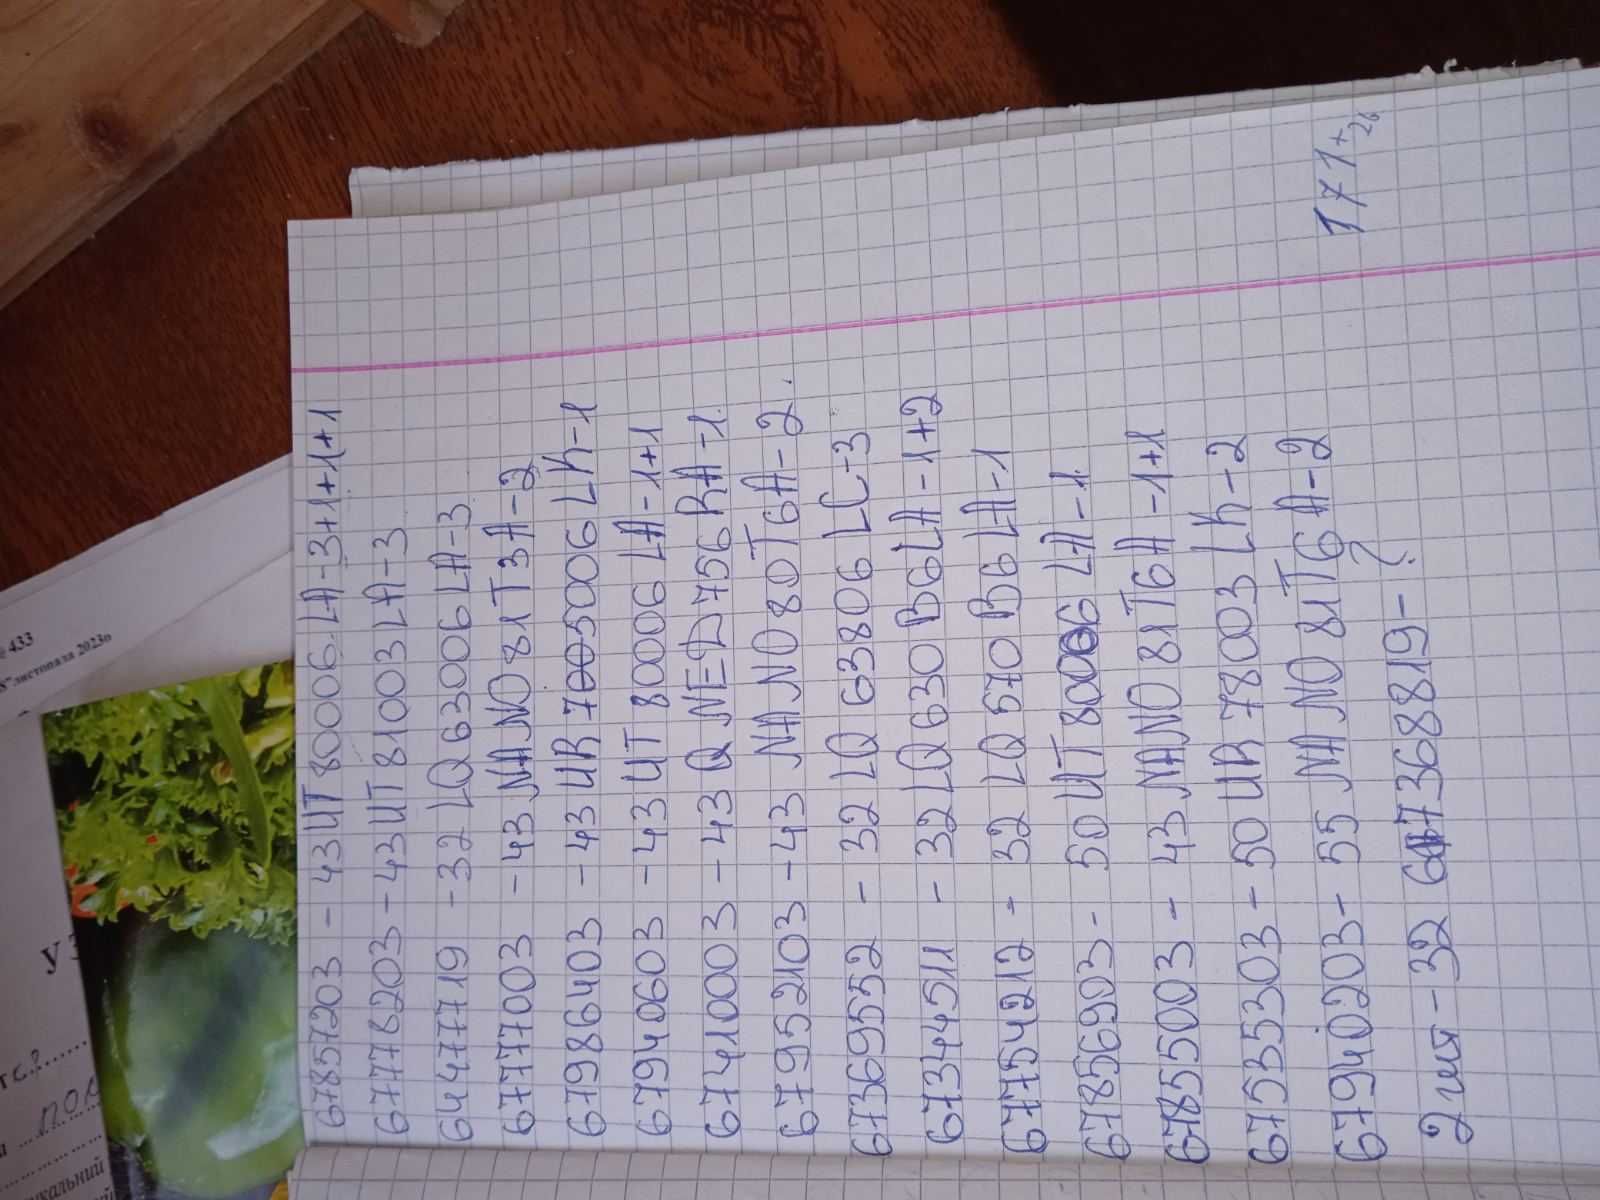 67857203 - 43UT80006LA-3+1+1+1
67778203 - 43UT81003LA-3
64477719 - 32LQ63006LA-3
67777003 - 43NANO81T3A-2
67986403 - 43UR70050006LK-1
67940603 - 43UT80006LA-1+1
67441000З - 43QNED756RA-1
67952103 - 43 NANO80T6A-2.
67369552 - 32LQ63806LC-3
67344511 - 32LQ630B6LA-1+2
67754212 - 32LQ570B6LA-1
67856903 - 50UT80006LA-1
67855003 - 43NANO81T6A-1+1
67535303 - 50UR78003LK-2
67940203 - 55NANO81T6A-2
2 лист - 32 67368819 - ?
171+
26
№ 433
8" листопада 2023р
У З
тс?
пок